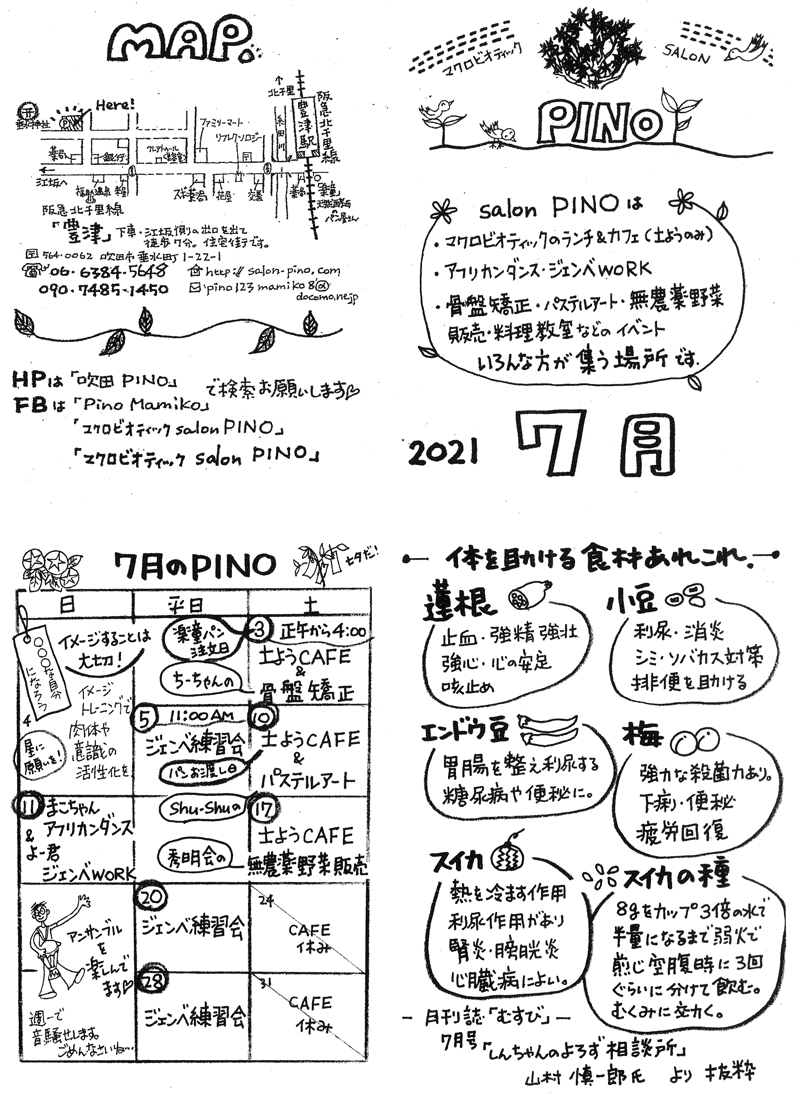 MAP.
Here!
PINO
ファミリーマート
リフレクソロジー
北千里
豊津駅
阪急北千里線
薬局
銀行
江坂へ
スギ薬局
花屋
交番
薬局
楽童
パン屋さん
阪急北千里線
「豊津」下車・江坂側の出口を出て
徒歩7分。住宅街です。
〒564-0062 吹田市垂水町1-22-1
06-6384-5648
http://salon-pino.com
090-7485-1450
pino123mamiko8@
docomo.ne.jp
HPは「吹田 PINO」
で検索お願いします
FBは「Pino Mamiko」
「マクロビオティック salon PINO」
「マクロビオティック salon PINO」
マクロビオティック
SALON
PINO
salon PINO は
・マクロビオティックのランチ&カフェ(土ようのみ)
・アフリカンダンス・ジェンベWORK
・骨盤矯正・パステルアート・無農薬野菜
販売・料理教室などのイベント
いろんな方が集う場所です.
2021 7月
7月のPINO
七夕だ!
日 平日 土
〇〇〇な自分
になろう
イメージすることは
大切!
イメージ
トレーニングで
肉体や
意識の
活性化を
4
星に
願いを!
楽童パン
注文日
ちーちゃんの
3 正午から4:00
土ようCAFE
&
骨盤矯正
5 11:00AM
ジェンベ練習会
パンお渡し日
10
土ようCAFE
&
パステルアート
11 まこちゃん
アフリカンダンス
& よー君
ジェンベWORK
Shu-Shuの
秀明会の
17
土ようCAFE
&
無農薬野菜販売
アンサンブル
を
楽しんで
ます
週一で
音騒せします。
ごめんなさいね…
20
ジェンベ練習会
24
CAFE
休み
28
ジェンベ練習会
31
CAFE
休み
体を助ける食材あれこれ.
蓮根
止血・強精強壮
強心・心の安定
咳止め
小豆
利尿・消炎
シミ・ソバカス対策
排便を助ける
エンドウ豆
胃腸を整え利尿する
糖尿病や便秘に。
梅
強力な殺菌力あり。
下痢・便秘
疲労回復
スイカ
熱を冷ます作用
利尿作用があり
腎炎・膀胱炎
心臓病によい。
スイカの種
8gをカップ3倍の水で
半量になるまで弱火で
煎じ空腹時に3回
ぐらいに分けて飲む。
むくみに効く。
- 月刊誌・「むすび」-
7月号「しんちゃんのよろず相談所」
山村 慎一郎氏 より 抜粋